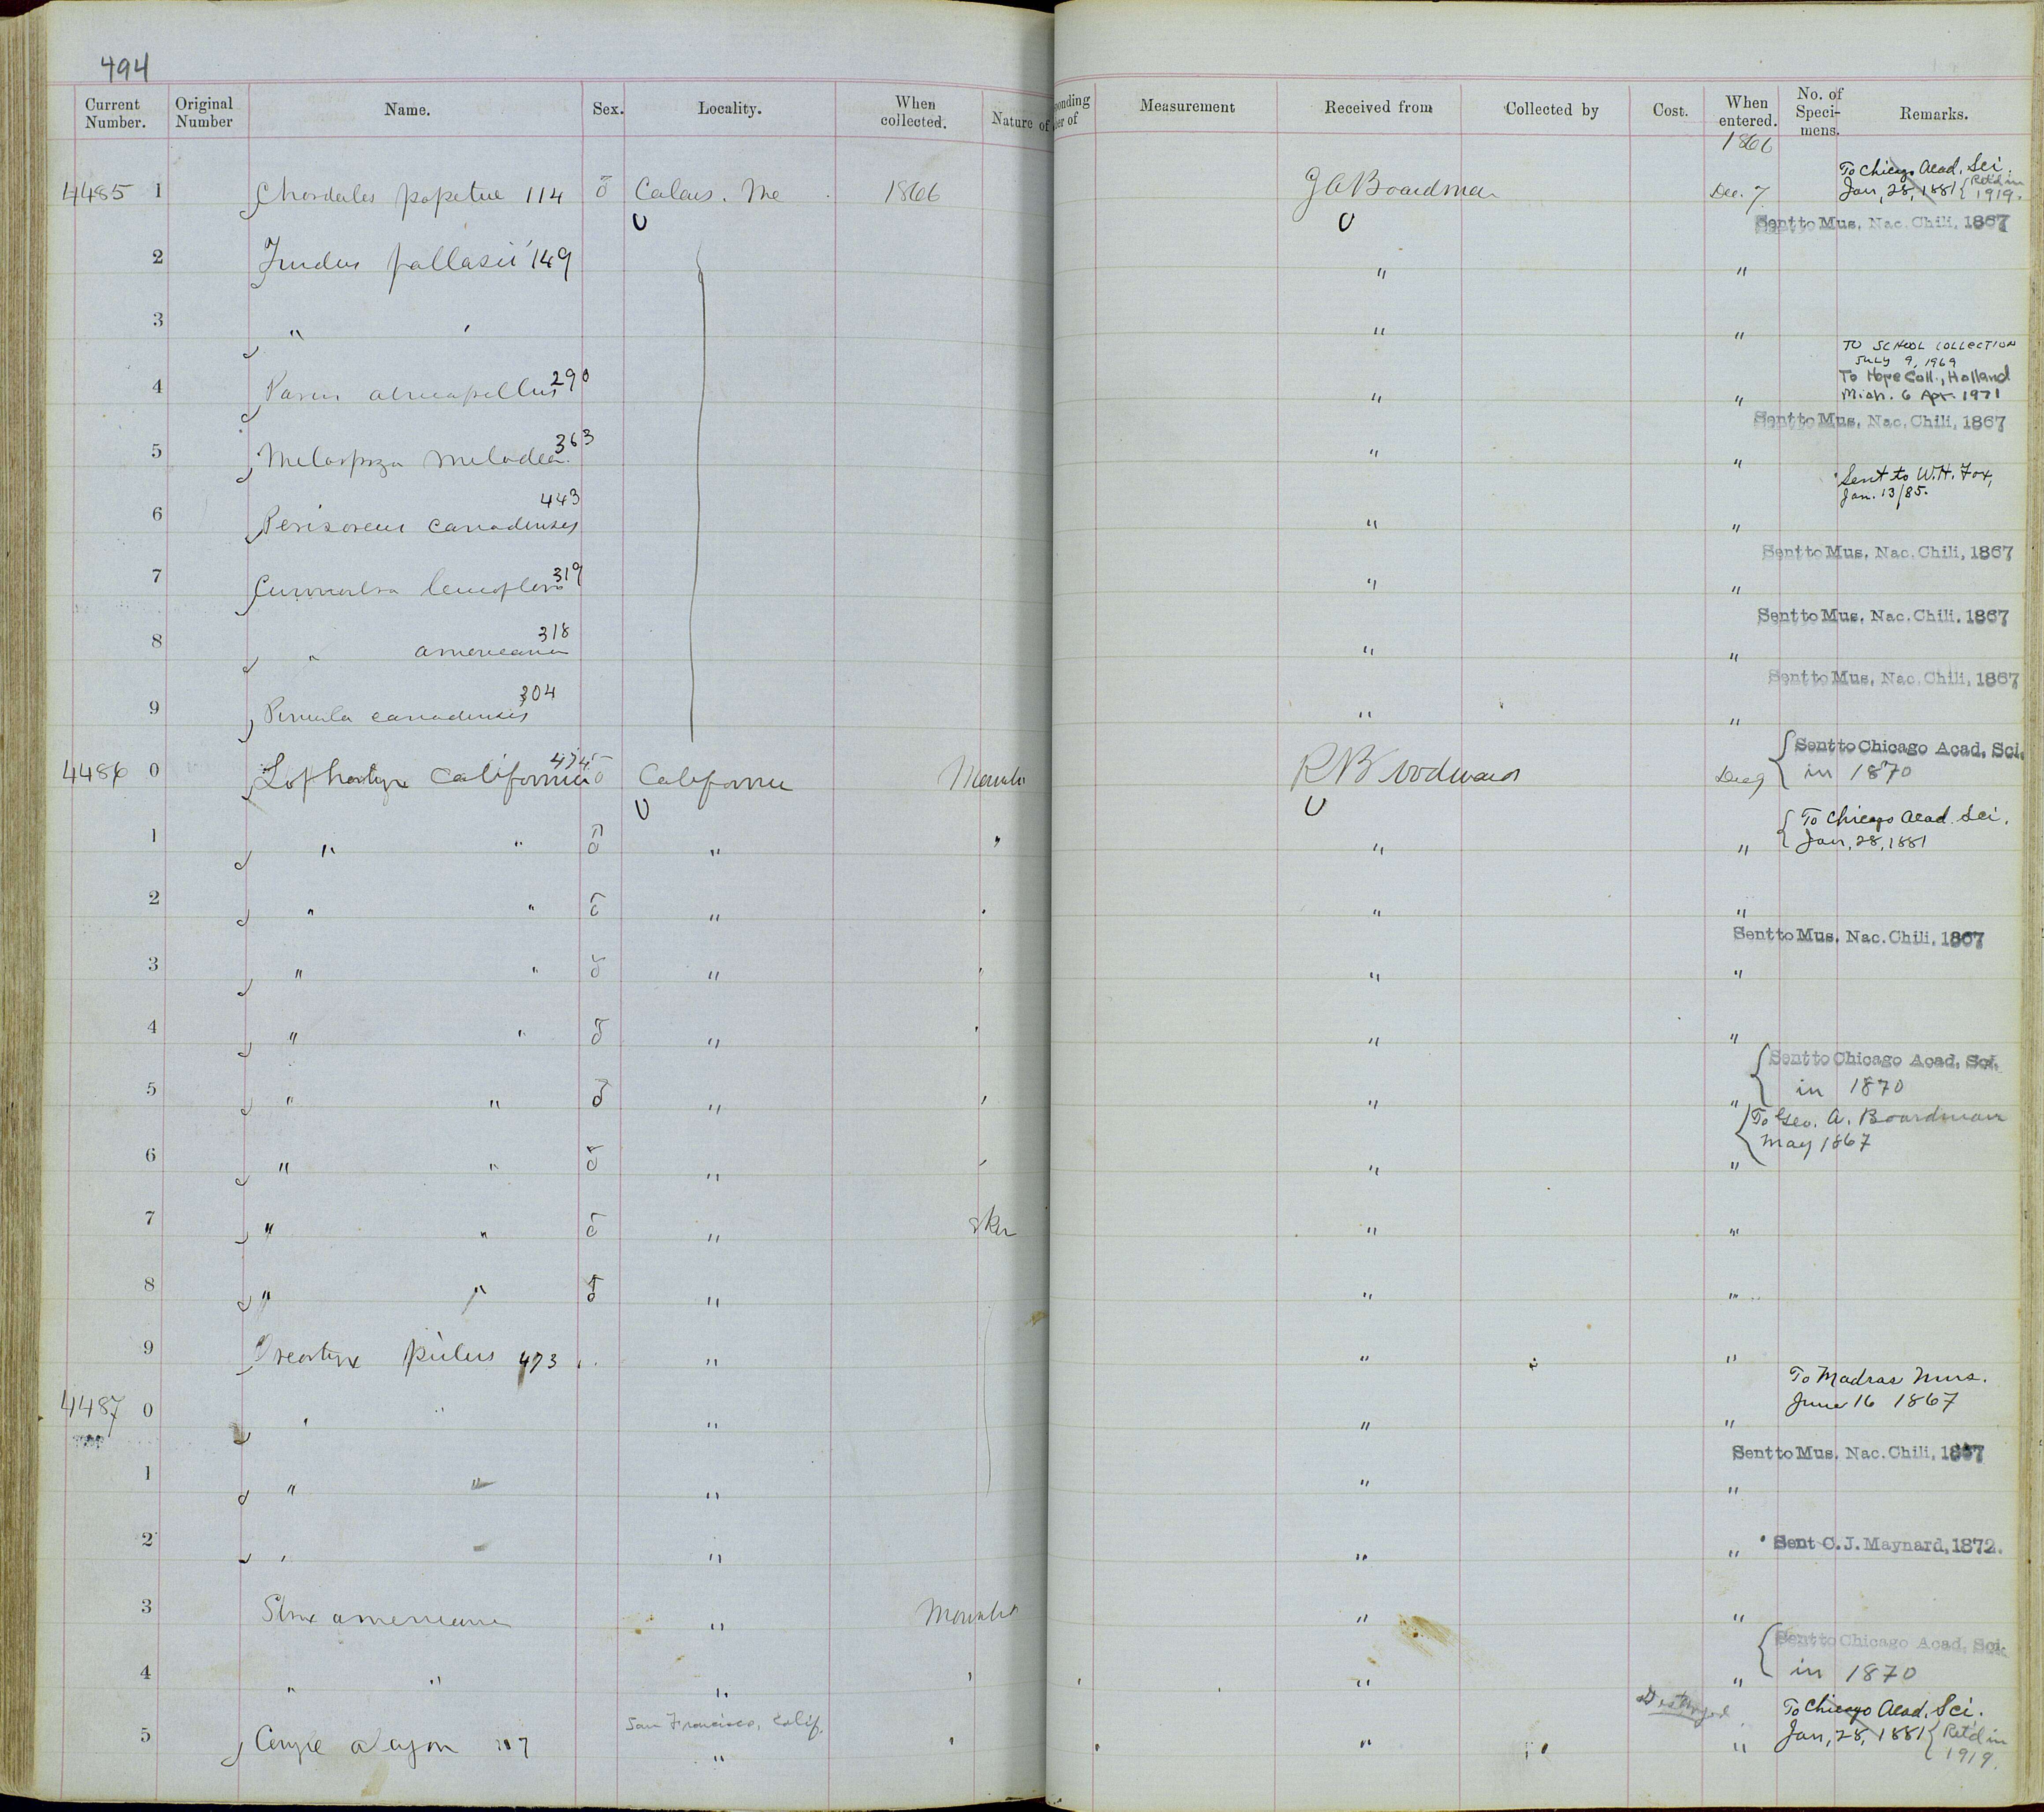 494
Current Number. Original Number Name. Sex. Locality. When collected. Nature of
onding er of Measurement Received from Collected by Cost. When entered. No. of Speci-mens. Remarks.
1866
To Chicago Acad. Sci.
4485 1 Chordeiles popetue 114 Calais. Me 1866 G A Boardman Dec. 7 Jan, 28, 1881 { Ret'd in 1919.
Sent to Mus. Nac. Chili, 1867
2 Turdus pallasii 149 " "
3 " " " "
TO SCHOOL COLLECTION
JULY 9, 1969
To Hope Coll., Holland
4 Parus atricapillus 290 " " Mich. 6 Apr. 1971
Sent to Mus. Nac. Chili, 1867
5 Melospiza melodea 363 " "
Sent to W.H. Fox,
Jan. 13/85.
6 Perisoreus canadensis 443 " "
Sent to Mus. Nac. Chili, 1867
7 Curvirostra leucoptera 319 " "
Sent to Mus. Nac. Chili. 1867
8 " americana 318 " "
Sent to Mus. Nac. Chili, 1867
9 Pinicola canadensis 304 " "
Sent to Chicago Acad. Sci.
4486 0 Lophortyx Californicus 474 California Mounted R B Woodward Dec 9 in 1870
To Chicago Acad. Sci.
1 " " " " " " Jan, 28, 1881
2 " " " " " "
Sent to Mus. Nac. Chili, 1867
3 " " " " " "
4 " " " " " "
Sent to Chicago Acad. Sci.
in 1870
5 " " " " " "
To Geo. A. Boardman
May 1867
6 " " " " " "
7 " " " Skin " "
8 " " " " "
9 Oreortyx pictus 473 " " "
To Madras Mus.
4487 0 " " " " " June 16 1867
Sent to Mus. Nac. Chili, 1867
1 " " " " "
2 " " " " Sent C. J. Maynard, 1872.
3 Strix americana " Mounted " "
Sent to Chicago Acad. Sci.
4 " " " " " " in 1870
San Francisco, Calif. Destroyed To Chicago Acad. Sci.
5 Ceryle alcyon 117 " " " " Jan, 28, 1881 { Ret'd in 1919.